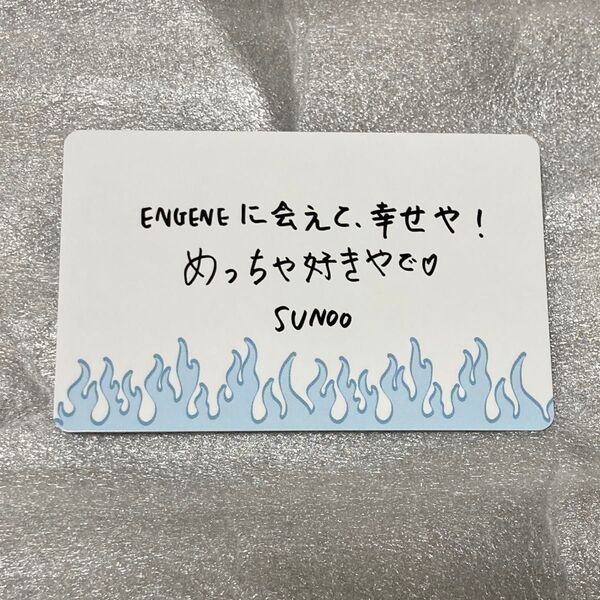 ENGENEに会えて、幸せや!
めっちゃ好きやで♡
SUNOO